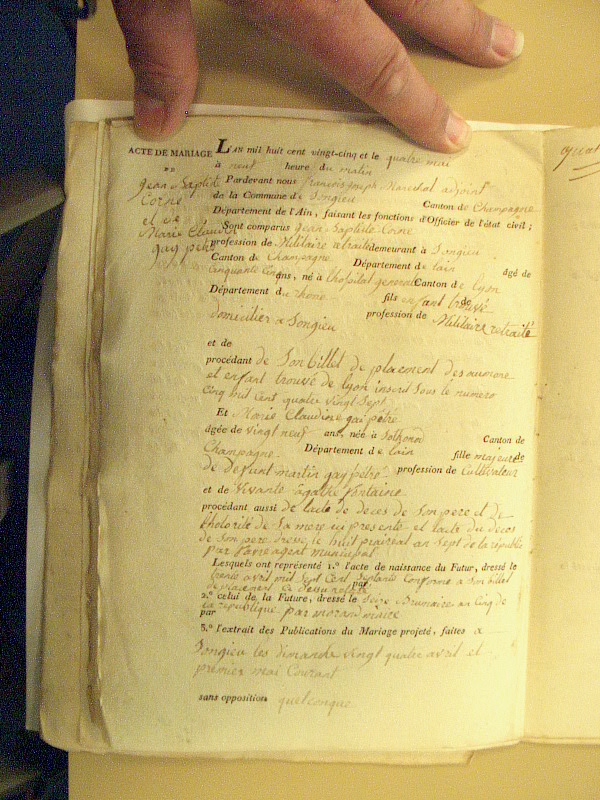 ACTE DE MARIAGE
DE
jean Baptiste
Corne
et de
Marie Claudine
gay petre
L'AN mil huit cent vingt-cinq et le quatre mai
à neuf heure du matin
Pardevant nous françois joseph Maréchal adjoint
de la Commune de Songieu Canton de Champagne
Département de l'Ain, faisant les fonctions d'Officier de l'état civil;
Sont comparus jean Baptiste Corne
profession de Militaire retraité demeurant à Songieu
Canton de Champagne Département de lain âgé de
cinquante cinq ans, né à Lhospital general Canton de lyon
Département du rhone fils enfant trouvé de
domicilier a Songieu profession de Militaire retraité
et de
procédant de Son billet de placement des aumone
et enfant trouvé de lyon inscrit sous le numero
cinq mil cent quatre vingt sept
Et Marie Claudine gai petre
âgée de vingt neuf ans, née à Sothonod Canton de
Champagne Département de lain fille majeure de
de defunt martin gay petre profession de Cultivateur
et de Vivante agathe fontaine
procédant aussi de lacte de deces de Son pere et de
lhotorité de Sa mere ici presente et lacte du deces
de Son pere dressé le huit prairéal an Sept de la républic
par favre agent municipal
Lesquels ont représenté 1.º l'acte de naissance du Futur, dressé le
trente avril mil Sept Cent Septante conforme a Son billet
de placement Ci dessu par
2.º celui de la Future, dressé le Seize Brumaire an Cinq de
la republique par morand maire
par
3.º l'extrait des Publications du Mariage projeté, faites a
Songieu les dimanche vingt quatre avril et
premier mai Courant
sans opposition quelconque
quat